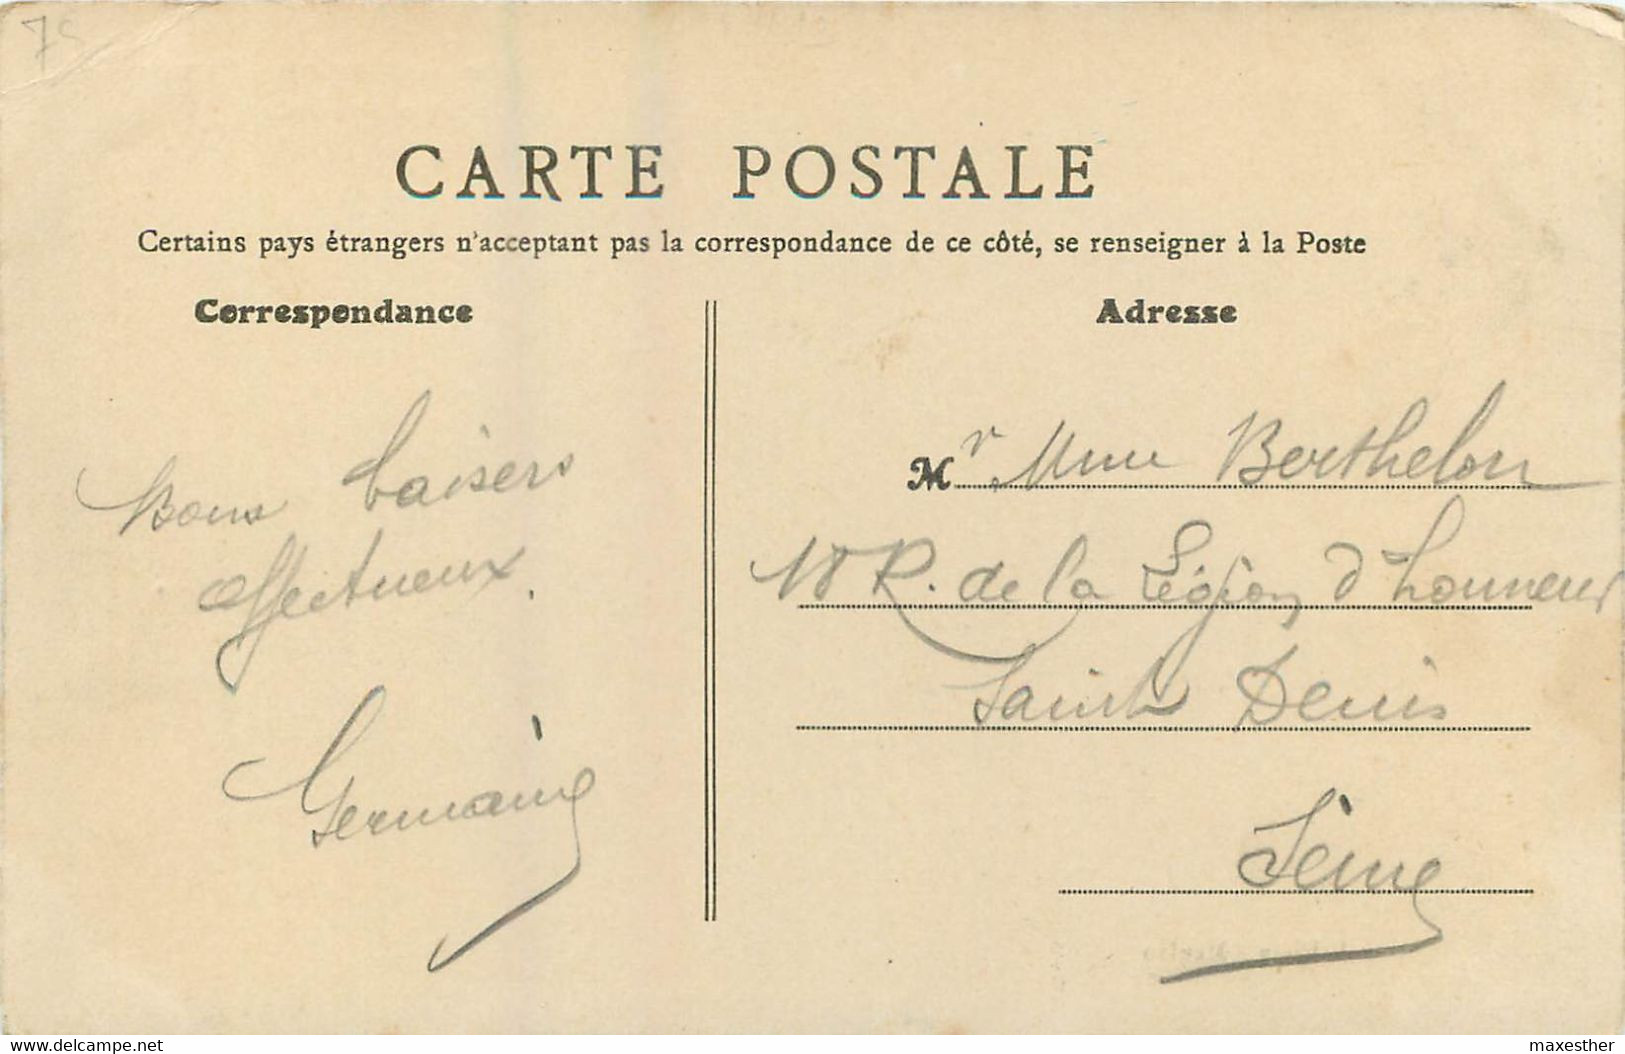 75
CARTE POSTALE
Certains pays étrangers n'acceptant pas la correspondance de ce côté, se renseigner à la Poste
Correspondance
Adresse
Bons baisers
affectueux.
Germaine
Mr Mme Berthelon
18 R. de la Légion d'honneur
Saint Denis
Seine
www.delcampe.net
maxesther